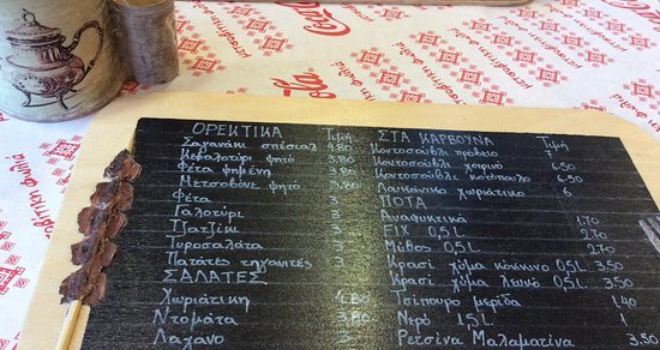 ΟΡΕΚΤΙΚΑ Τιμή
Σαγανάκι σπέσιαλ 4.80
Κεφαλοτύρι ψητό 3.80
Φέτα ψημένη 3.80
Μετσοβόνε ψητό 3.80
Φέτα 3
Γαλοτύρι 3
Τζατζίκι 3
Τυροσαλάτα 3
Πατάτες τηγανιτές 3
ΣΑΛΑΤΕΣ
Χωριάτικη 4.80
Ντομάτα 3.80
Λάχανο 3
ΣΤΑ ΚΑΡΒΟΥΝΑ Τιμή
Κοντοσούβλι πρόβειο 7
Κοντοσούβλι χοιρινό 6.50
Κοντοσούβλι κοτόπουλο 6.50
Λουκάνικο χωριάτικο 6
ΠΟΤΑ
Αναψυκτικά 1.70
FIX 0,5L 2.70
Μύθος 0.5L 2.70
Κρασί χύμα κόκκινο 0,5L 3.50
Κρασί χύμα λευκό 0,5L 3.50
Τσίπουρο μερίδα 1.40
Νερό 1,5L 1
Ρετσίνα Μαλαματίνα 3.50
Coca-Cola